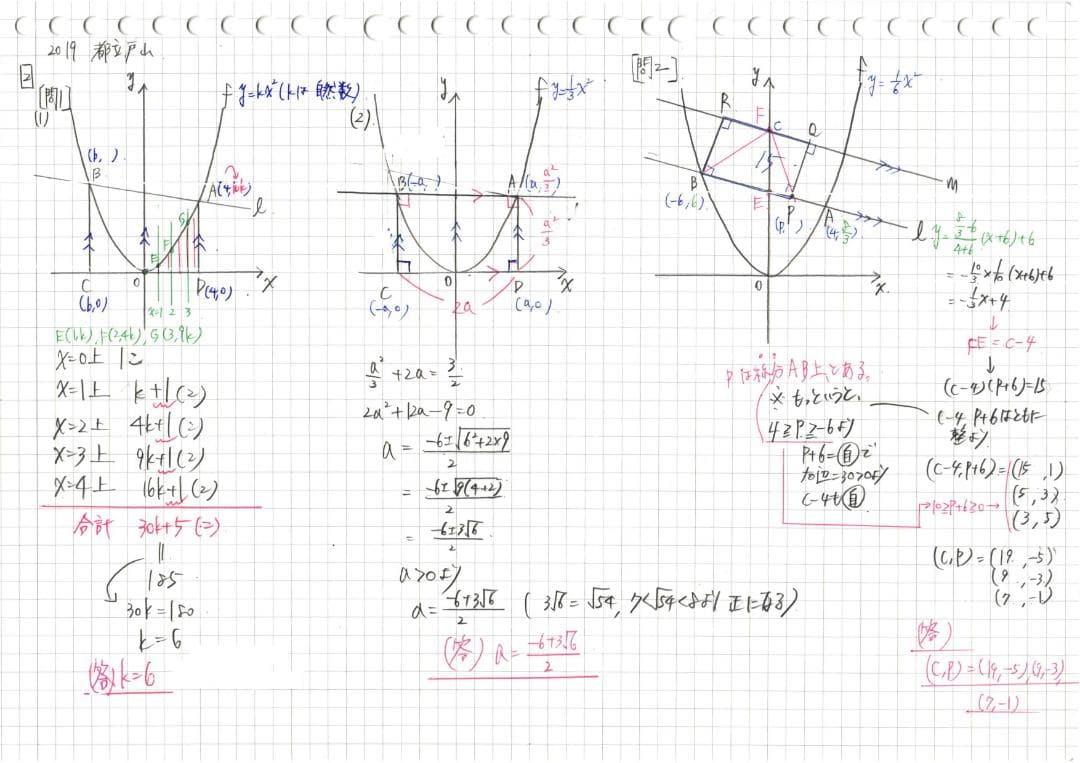 2019 都立戸山
2
[問1]
(1)
y
f
y=kx² (kは自然数)
(b, )
B
A(4,16k)
l
G
F
E
O
x
C
(b,0)
x=1 2 3
D(4,0)
E(1,k), F(2,4k), G(3,9k)
x=0上 1こ
x=1上 k+1(こ)
x=2上 4k+1(こ)
x=3上 9k+1(こ)
x=4上 16k+1(こ)
合計 30k+5(こ)
||
185
30k=180
k=6
(答) k=6
(2)
y
f
y=1/3x²
B(-a, )
A(a, a²/3)
a²/3
O
x
C
(-a,0)
2a
D
(a,0)
a²/3 + 2a = 3/2
2a²+12a-9=0
a = (-6±√(6²+2×9))/2
= (-6±√(9(4+2)))/2
= (-6±3√6)/2
a>0より
a = (-6+3√6)/2 (3√6=√54, 7<√54<8より正になる)
(答) a = (-6+3√6)/2
[問2]
y
f
y=1/6x²
R
F
C
Q
15
m
B
(-6,6)
E
P
(p, )
A
(4, 8/3)
l
O
x
y = (8/3-6)/(4+6) (x+6)+6
= -10/3×1/10(x+6)+6
= -1/3x+4
↓
FE=c-4
↓
(c-4)(p+6)=15
c-4, p+6はともに
整より
(c-4,p+6)=(15, 1)
(5, 3)
(3, 5)
Pは線分AB上とある。
※ もっというと、
4≧p≧-6より
p+6=自で
右辺=30>0より
c-4も自
→10≧p+6≧0→
(c,p)=(19, -5)
(9, -3)
(7, -1)
(答)
(c,p)=(19,-5),(9,-3),
(7,-1)